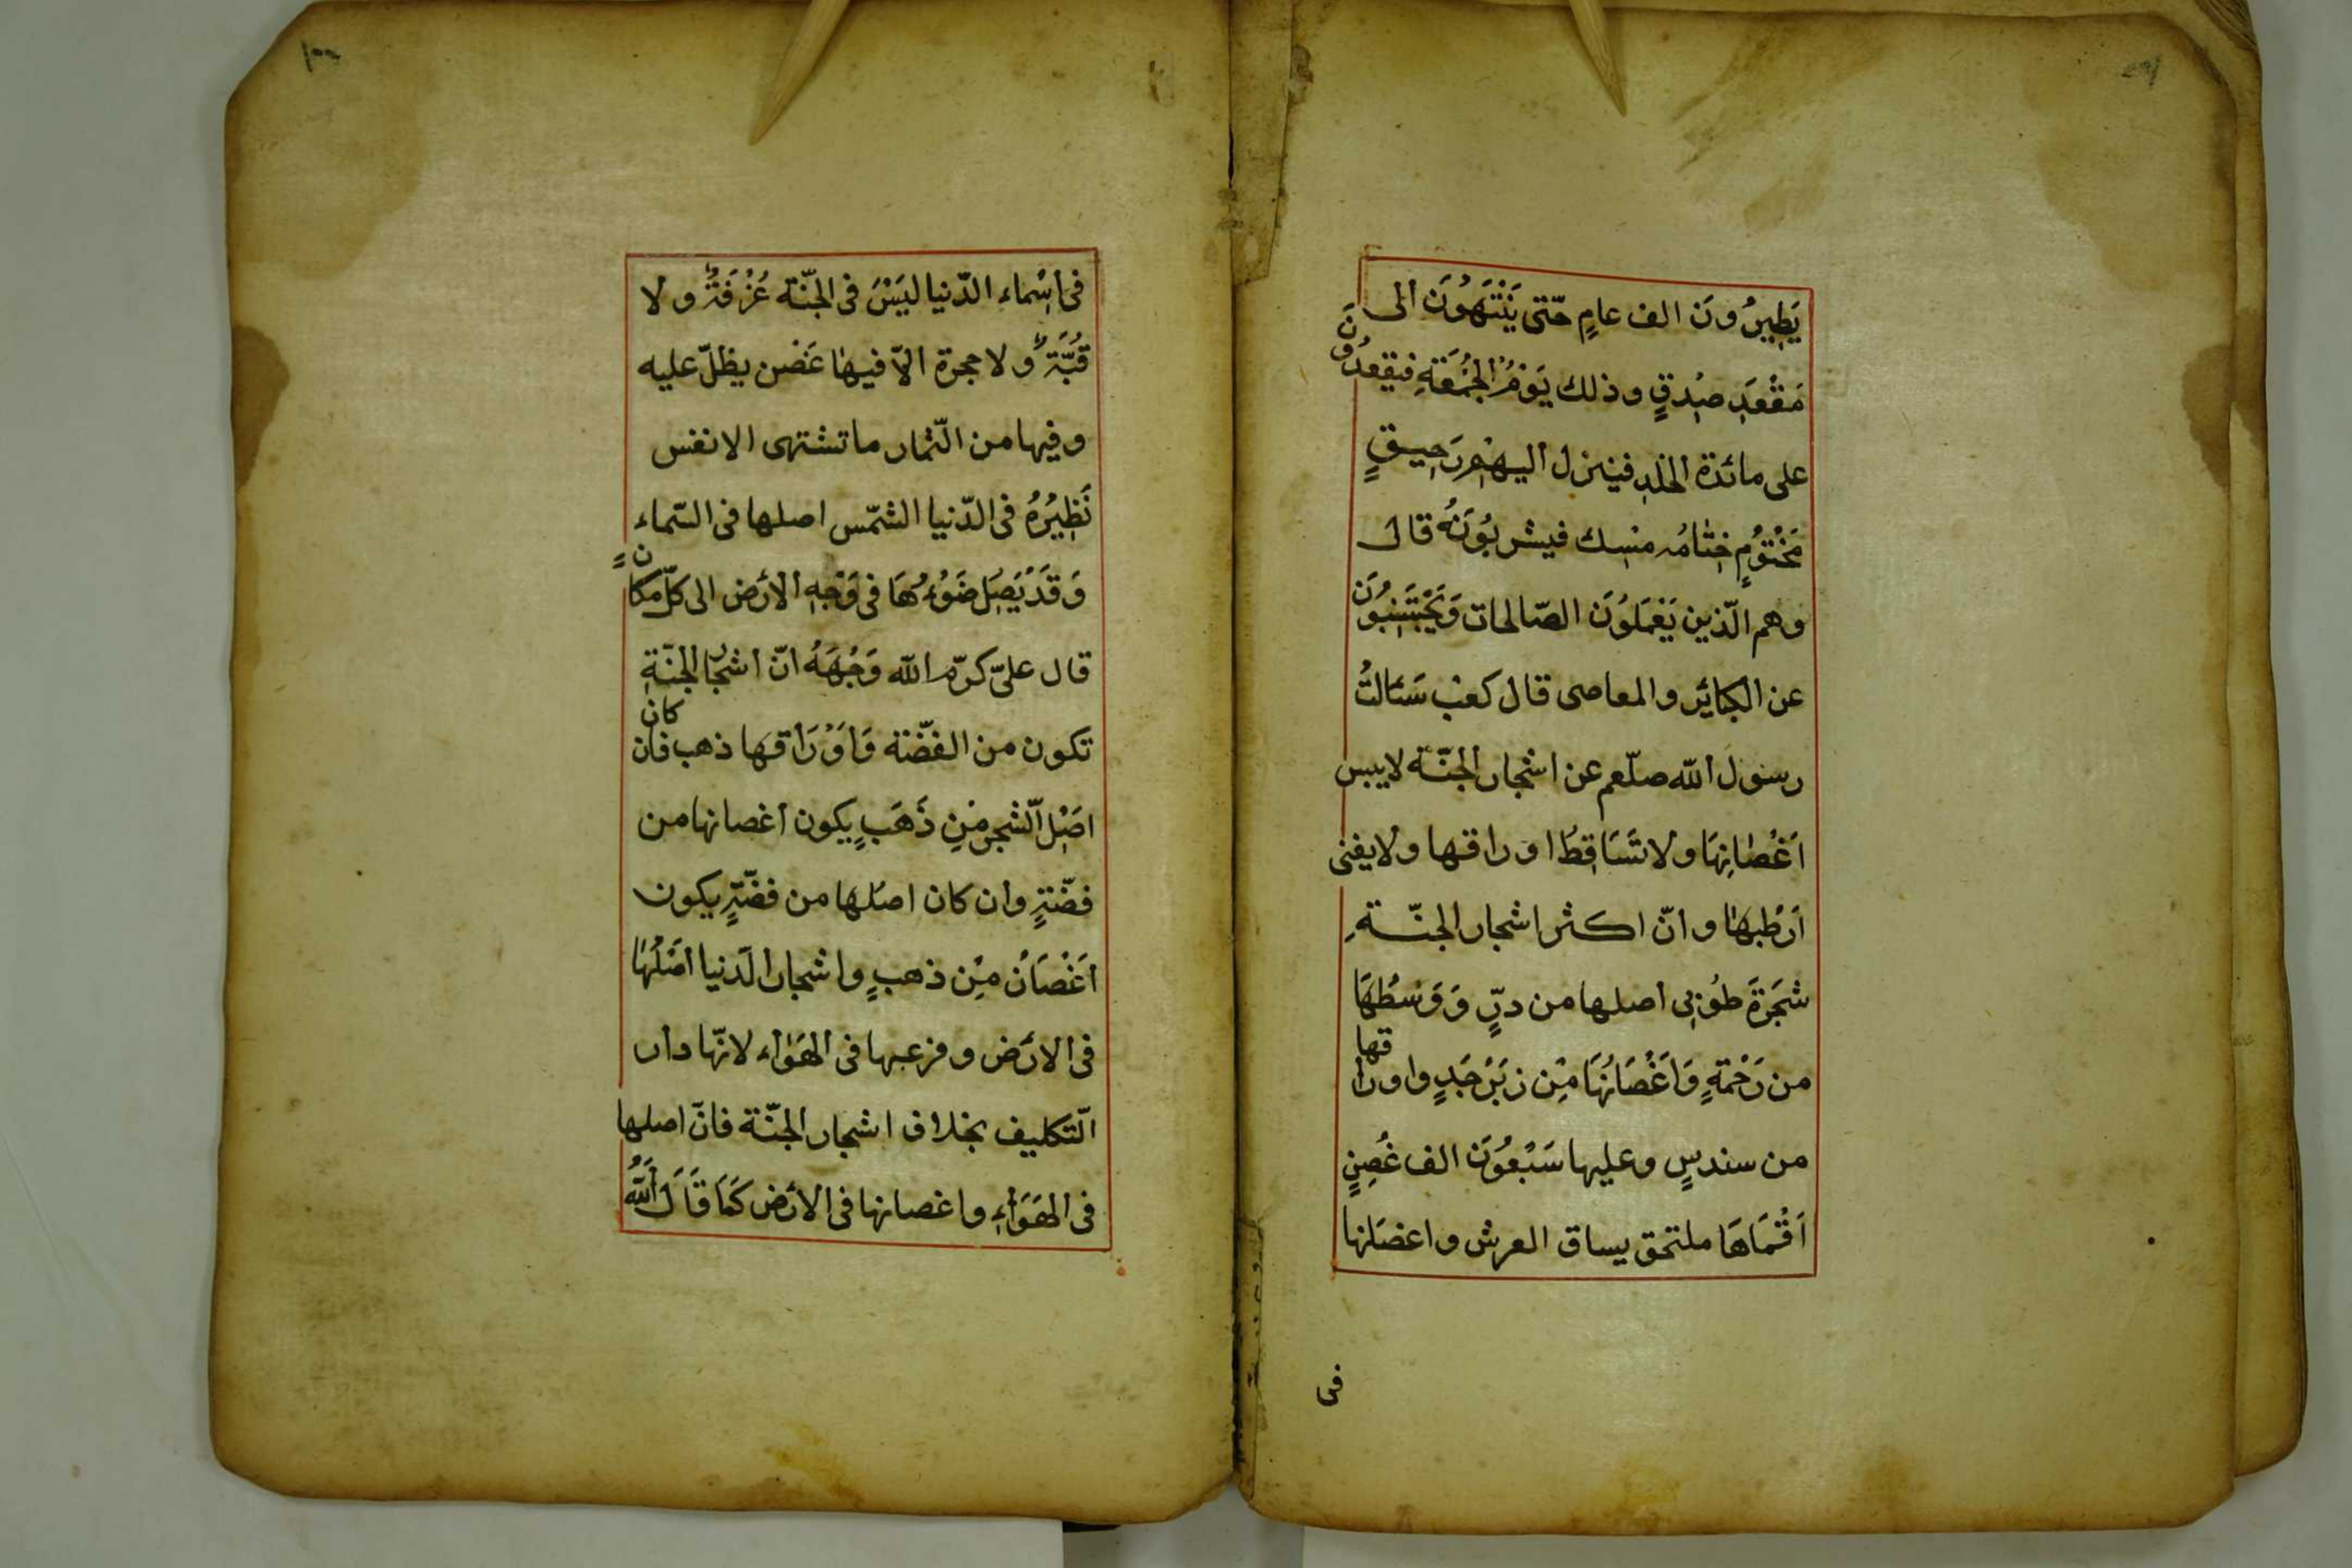 يَطِيرُونَ الف عامٍ حتّى يَنْتَهُونَ الى
مَقْعَدِ صِدقٍ وذلك يَوْمُ الْجُمُعَةِ فيقعدُونَ
على مائدة الخلدِ فينزل اليهِم رَحِيقٍ
مَخْتُومٍ خِتَامُه مِسك فيشربُونَهُ قال
وهم الّذين يَعْمَلُونَ الصّالحات وَيَجْتَنِبُونَ
عن الكبائر والمعاصى قال كعب سَئَالتُ
رسول الله صلّعم عن اشجار الجنّة لاييبس
اَغْصَانِهَا ولا تَسَاقِطُ اوراقها ولايفنى
اَرْطبهَا وانّ اكثر اشجار الجنّةِ
شَجَرَةَ طُوبى اصلها من درٍّ وَوَسطُهَا
من رَحْمَةٍ وَاَغْصَانُهَا مِن زَبَرْجَدٍ واوراقها
من سندسٍ وعليها سَبْعُونَ الف غُصنٍ
اَقْمَاهَا ملتحق بساق العرش واعضَانها
فى
١٠٠
فى اسْماء الدّنيا ليَسَ فى الجنّة غُرْفَةٌ ولا
قُبَّةٌ ولا حجرة الاّ فيها غَصْن يظلّ عليه
وفيها من الثّمار ماتشتهى الانفس
نَظِيرُهُ فى الدّنيا الشمّس اصلها فى السّماء
وَقَدْ يَصِل ضَوْءُهَا فى وَجْهِ الأرض الى كلّ مكانٍ
قال علىّ كرّم الله وَجْهَهُ انّ اشجار الجنّةِ
تكون من الفضّة وَاَوْرَاقها ذهب فان كان
اصْل الشّجر مِن ذَهَبٍ يكون اغصانها من
فضّةٍ وان كان اصلها من فضّةٍ يكون
اَغْصَانُ مِن ذهبٍ واشجار الدّنيا اصْلُهَا
فى الارض وفرعها فى الهَوَاء لانّها دار
التّكليف بخلاف اشجار الجنّة فانّ اصلها
فى الهَوَاءِ واغصانها فى الارض كَمَا قَالَ اللهُ